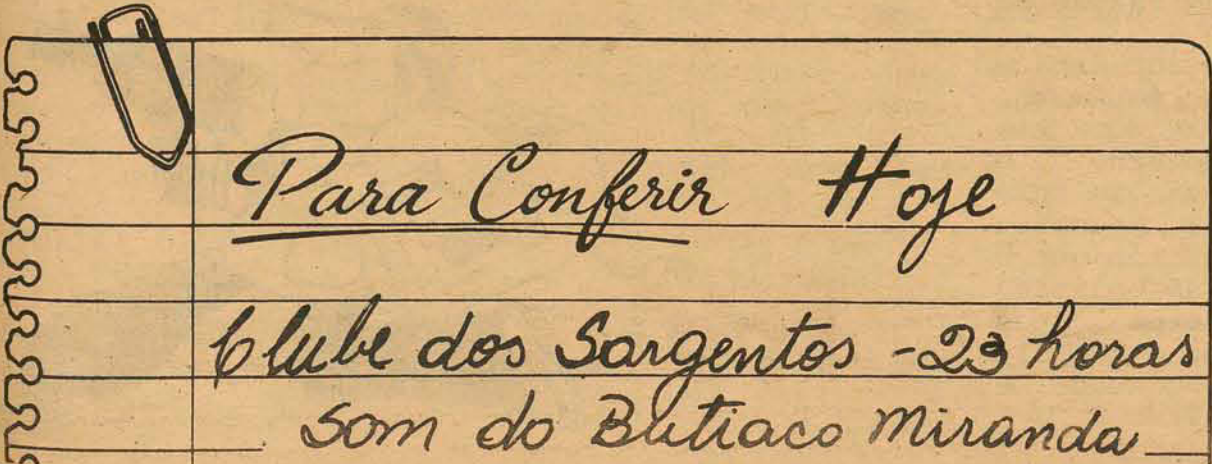 Para Conferir Hoje
Clube dos Sargentos - 23 horas
Som do Butiaco Miranda